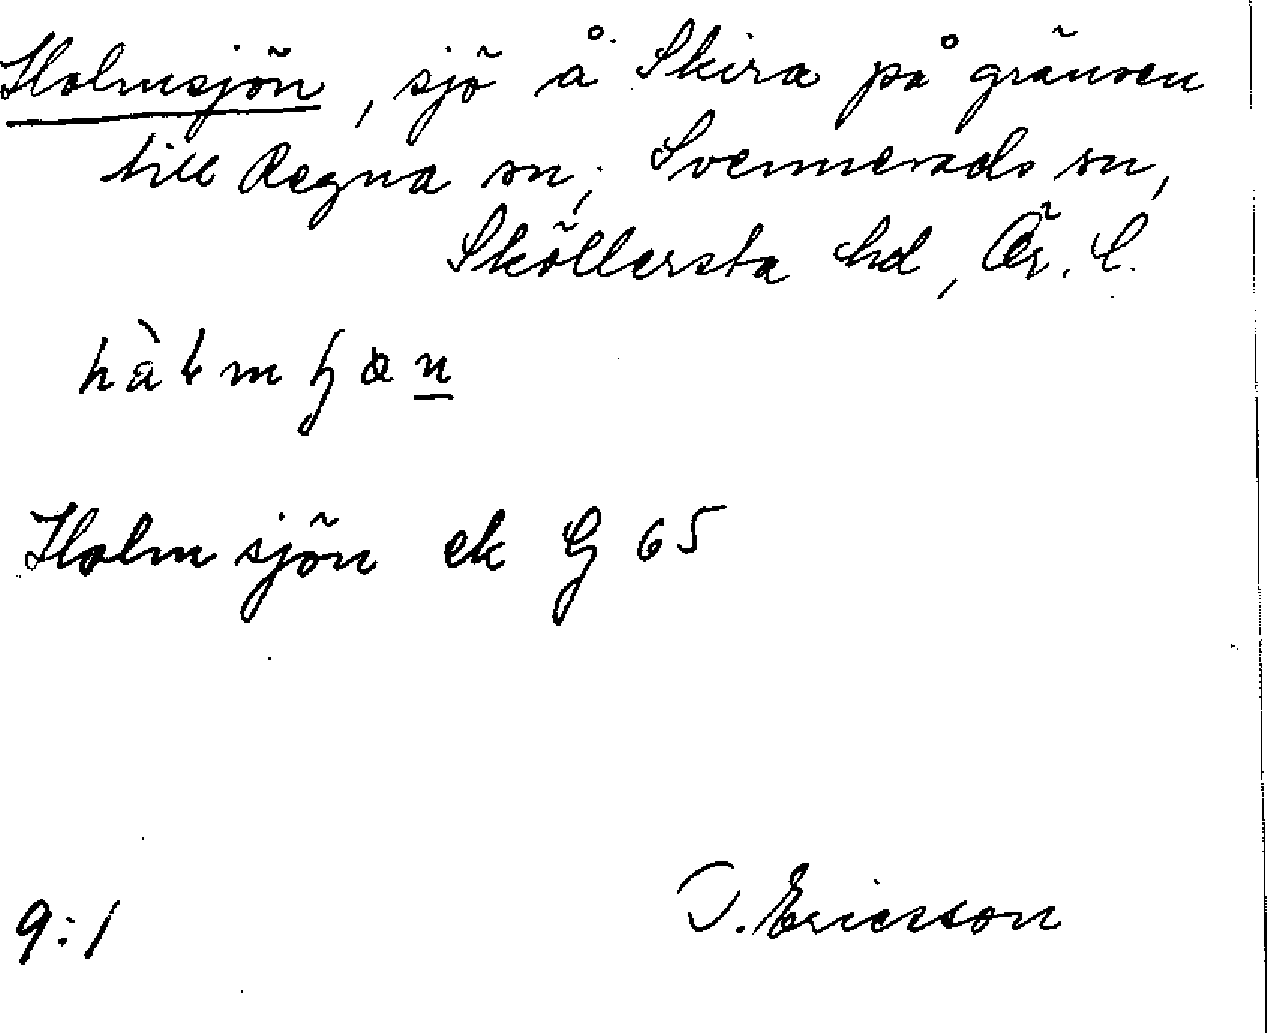 Holmsjön, sjö å Skira på gränsen
till Regna sn; Svennevads sn,
Sköllersta hd, Ör. l.
Holmsjön ek G 65
9:1
J. Ericsson